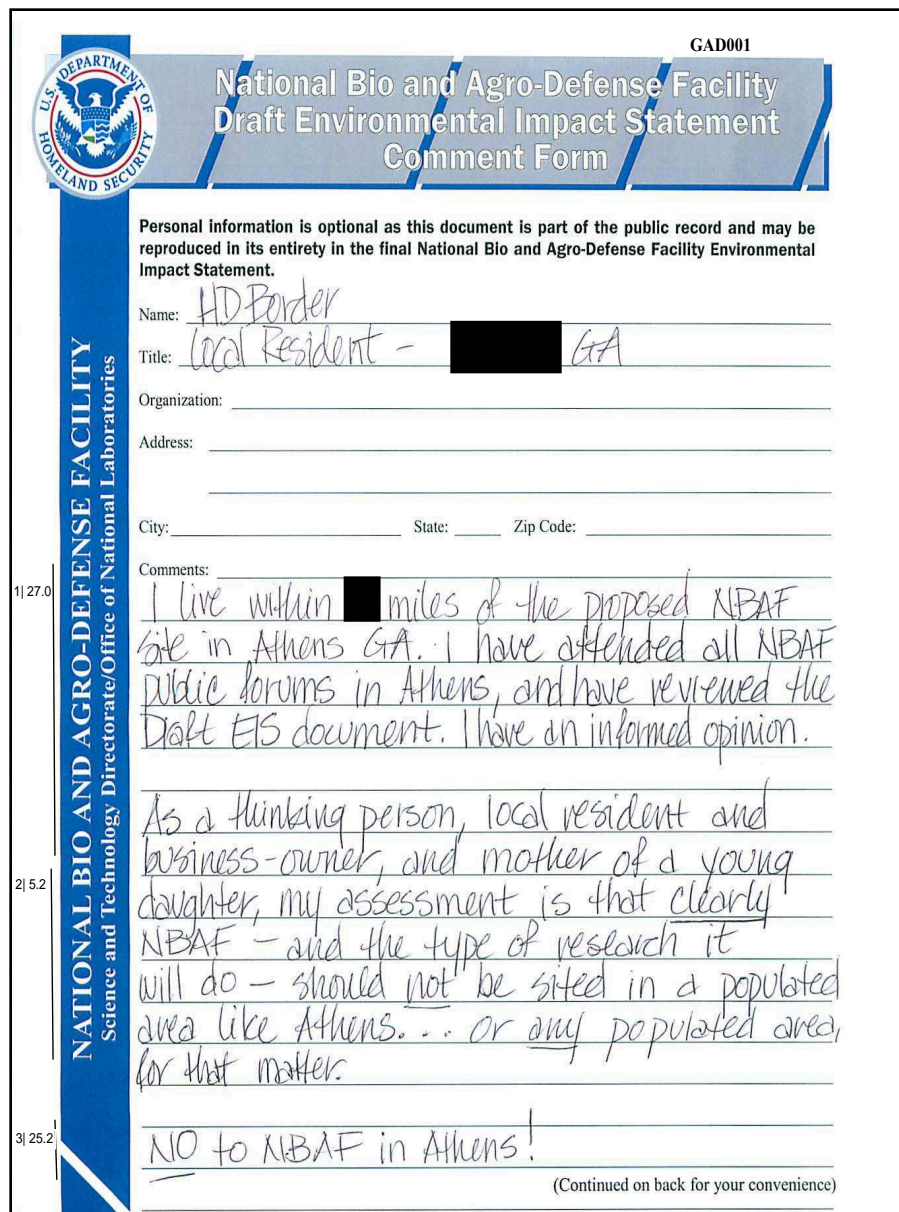 GAD001
U.S. DEPARTMENT OF
HOMELAND SECURITY
National Bio and Agro-Defense Facility
Draft Environmental Impact Statement
Comment Form
NATIONAL BIO AND AGRO-DEFENSE FACILITY
Science and Technology Directorate/Office of National Laboratories
Personal information is optional as this document is part of the public record and may be
reproduced in its entirety in the final National Bio and Agro-Defense Facility Environmental
Impact Statement.
Name: HD Border
Title: Local Resident - GA
Organization:
Address:
City: State: Zip Code:
Comments:
1| 27.0
I live within miles of the proposed NBAF
site in Athens GA. I have attended all NBAF
public forums in Athens, and have reviewed the
Draft EIS document. I have an informed opinion.
As a thinking person, local resident and
business-owner, and mother of a young
2| 5.2
daughter, my assessment is that clearly
NBAF - and the type of research it
will do - should not be sited in a populated
area like Athens... or any populated area,
for that matter.
3| 25.2
NO to NBAF in Athens!
(Continued on back for your convenience)